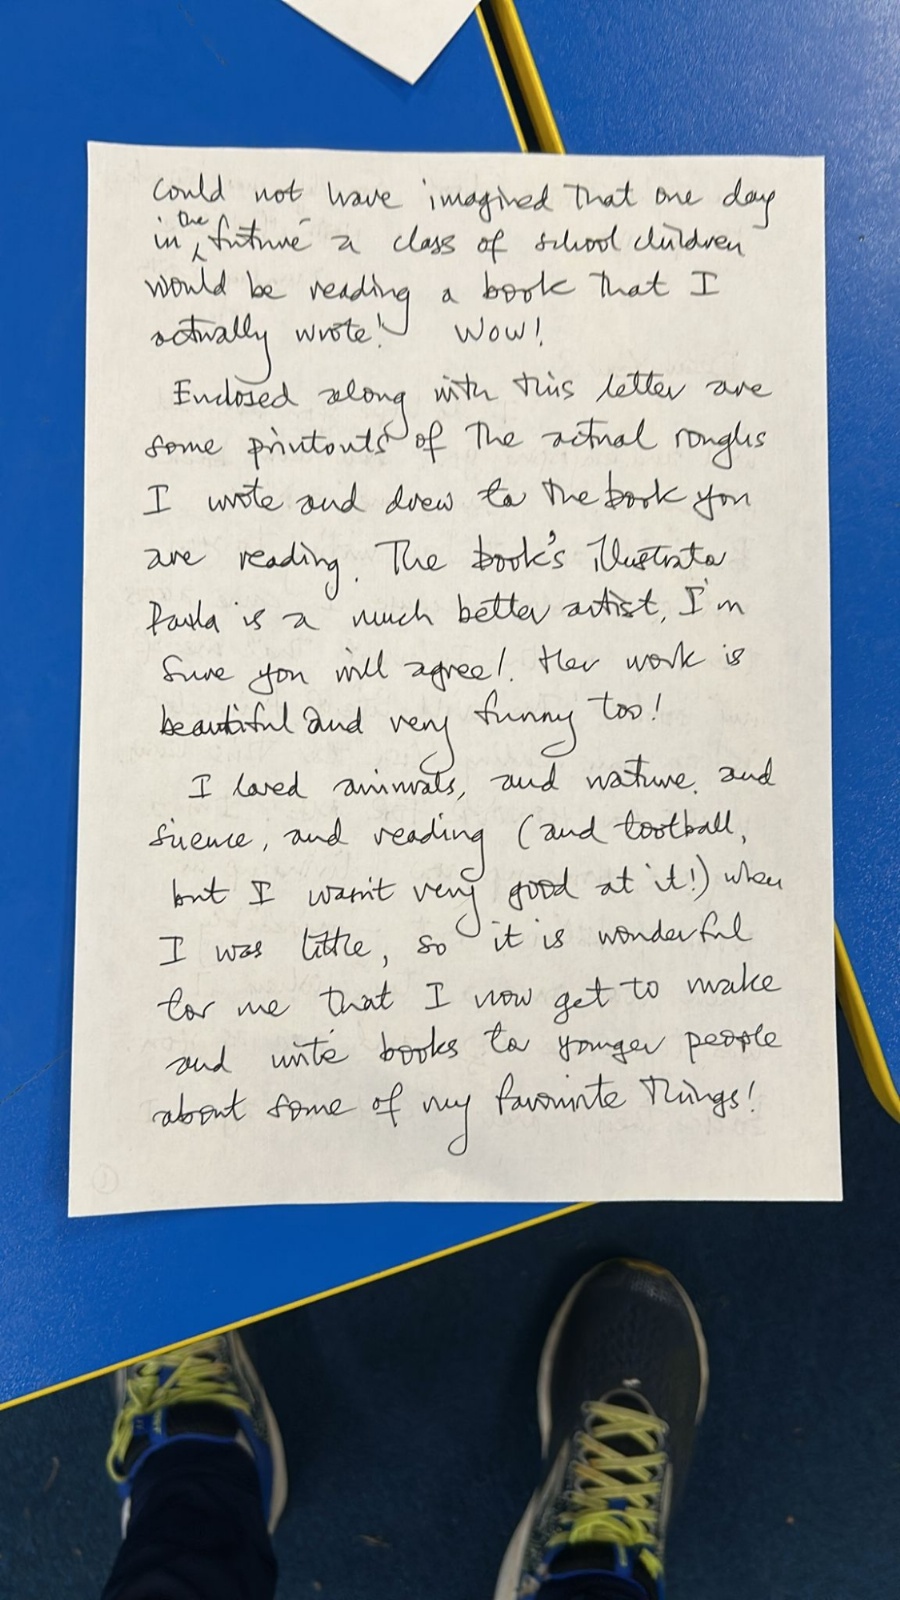 could not have imagined that one day
in the future a class of school children
would be reading a book that I
actually wrote! Wow!
Enclosed along with this letter are
some printouts of the actual roughs
I wrote and drew for the book you
are reading. The book's illustrator
Paula is a much better artist, I'm
sure you will agree! Her work is
beautiful and very funny too!
I loved animals, and nature, and
science, and reading (and football,
but I wasn't very good at it!) when
I was little, so it is wonderful
for me that I now get to make
and write books for younger people
about some of my favourite things!